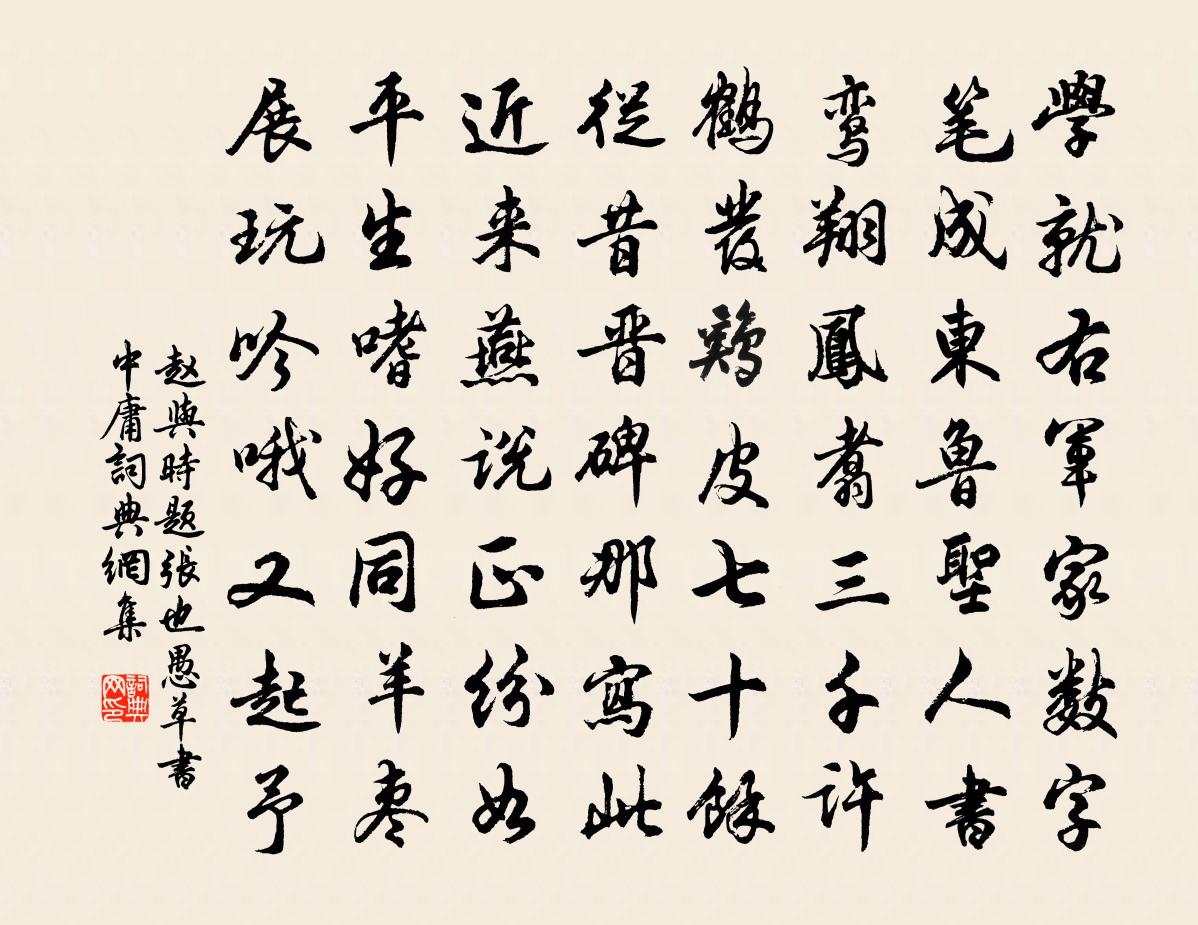 學就右軍家數字
笔成東魯聖人書
鸾翔鳳翥三千許
鶴發鷄皮七十餘
從昔晋碑那寫此
近来燕說正纷如
平生嗜好同羊枣
展玩吟哦又起予
赵與時题張也愚草書
中庸詞典網集
詞典网印